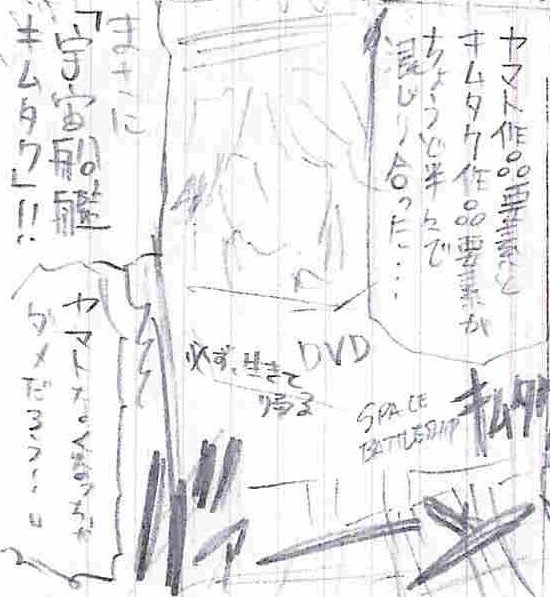 ヤマト作品要素と
キムタク作品要素が
ちょうど半々で
混じり合った…
DVD
必ず、生きて
帰る
SPACE
BATTLESHIP
キムタク
まさに
「宇宙船艦
キムタク」!!
ヤマトなくなっちゃ
ダメだろう!!